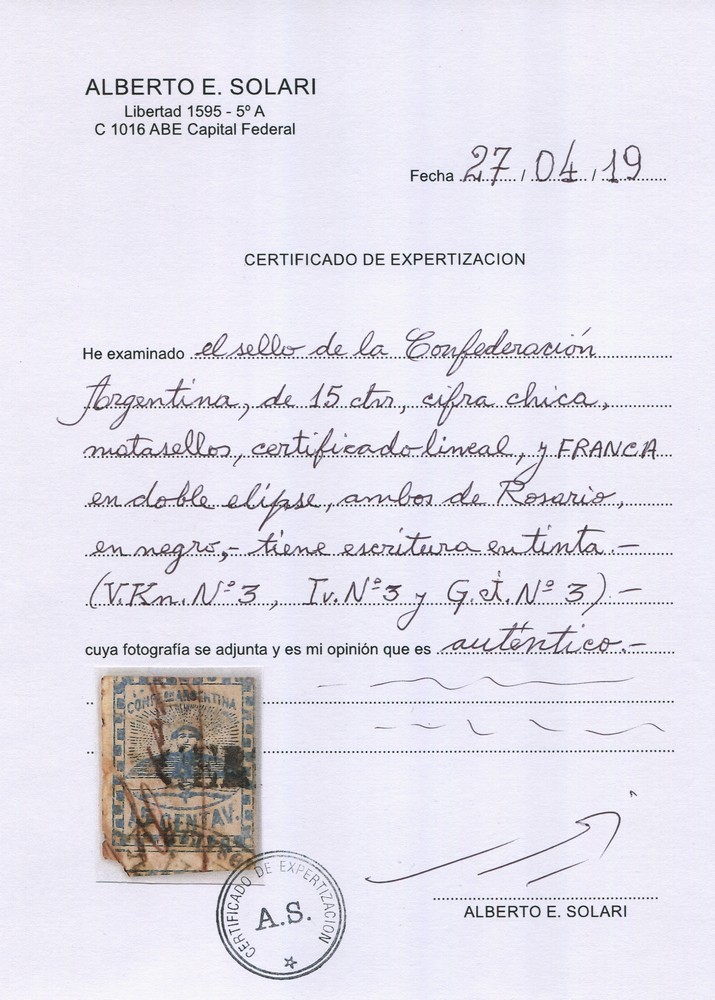 ALBERTO E. SOLARI
Libertad 1595 - 5º A
C 1016 ABE Capital Federal
Fecha 27 / 04 / 19
CERTIFICADO DE EXPERTIZACION
He examinado el sello de la Confederación
Argentina, de 15 ctvs, cifra chica,
matasellos, certificado lineal, y FRANCA
en doble elipse, ambos de Rosario,
en negro,- tiene escritura en tinta.-
(V.Kn. Nº 3, Iv. Nº 3 y G.J. Nº 3).-
cuya fotografía se adjunta y es mi opinión que es auténtico.-
CONFON ARGENTINA
15 CENTAV.
CERTIFICADO DE EXPERTIZACION
A.S.
ALBERTO E. SOLARI